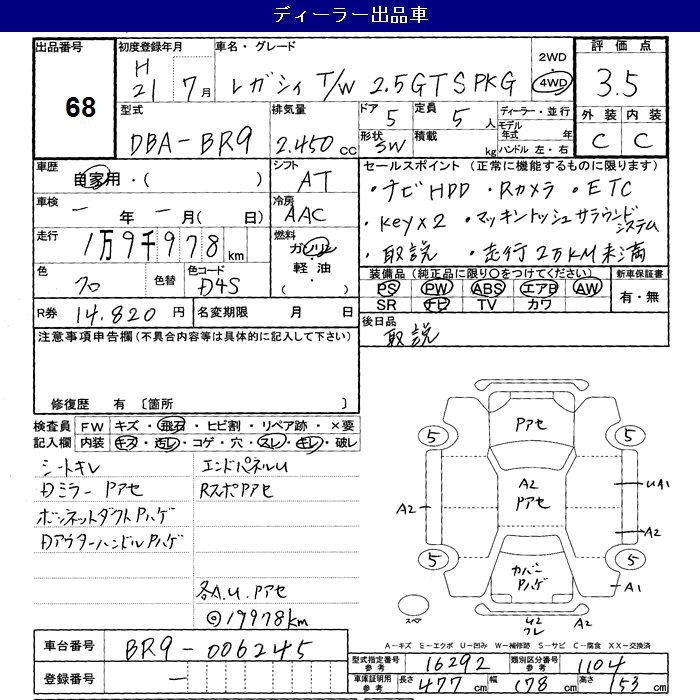 ディーラー出品車
出品番号 68
初度登録年月 H21年 7月
車名・グレード レガシィ T/W 2.5GT S PKG
2WD 4WD
評価点 3.5
外装 C 内装 C
型式 DBA-BR9
排気量 2.450 cc
ドア 5 形状 SW
定員 5人 積載 kg
ディーラー・並行
モデル年式 年式
ハンドル 左・右
車歴 自家用・( )
シフト AT
車検 ー年ー月(日)
冷房 AAC
走行 1万9千978km
燃料 ガソリン・軽油・( )
色 クロ 色替 色コード D4S
R券 14.820円 名変期限 月 日
セールスポイント(正常に機能するものに限ります)
・ナビHDD ・Rカメラ ・ETC
・Key×2 ・マッキントッシュサラウンドシステム
・取説 ・走行2万KM未満
装備品(純正品に限り○をつけてください) 新車保証書
PS PW ABS エアB AW 有・無
SR ナビ TV カワ
後日品 取説
注意事項申告欄(不具合内容等は具体的に記入して下さい)
修復歴 有 〔箇所 〕
検査員 FW キズ・飛石・ヒビ割・リペア跡・×要
記入欄 内装 キズ・汚レ・コゲ・穴・スレ・キレ・破レ
シートキレ エンドパネルU
Dミラー Pアセ RスポPアセ
ボンネットダクトPハゲ
DアウターハンドルPハゲ
各A.U.Pアセ
◎19978km
Pアセ
5 5
A2 Pアセ
UA1
A2 A2
5 5
カバンPハゲ
A1
スペ
A2
A-キズ E-エクボ U-凹み W-補修跡 S-サビ C-腐食 XX-交換済
車台番号 BR9-006245
型式指定番号 参考 16292 類別区分番号 参考 1104
登録番号 ー
車庫証明用 参考 長さ 477cm 幅 178cm 高さ 153cm